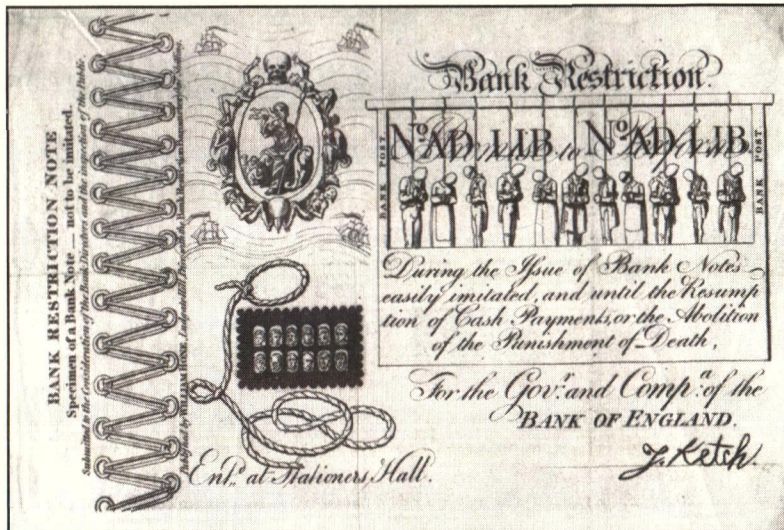 BANK RESTRICTION NOTE
Specimen of a Bank Note — not to be imitated.
Submitted to the Consideration of the Bank Directors and the inspection of the Public.
Bank Restriction.
BANK POST
No. AD. LIB. No. AD. LIB.
BANK POST
During the Issue of Bank Notes
easily imitated, and until the Resump
tion of Cash Payments, or the Abolition
of the Punishment of Death,
For the Govr. and Compa. of the
BANK OF ENGLAND.
J. Ketch.
Entd. at Stationers Hall.